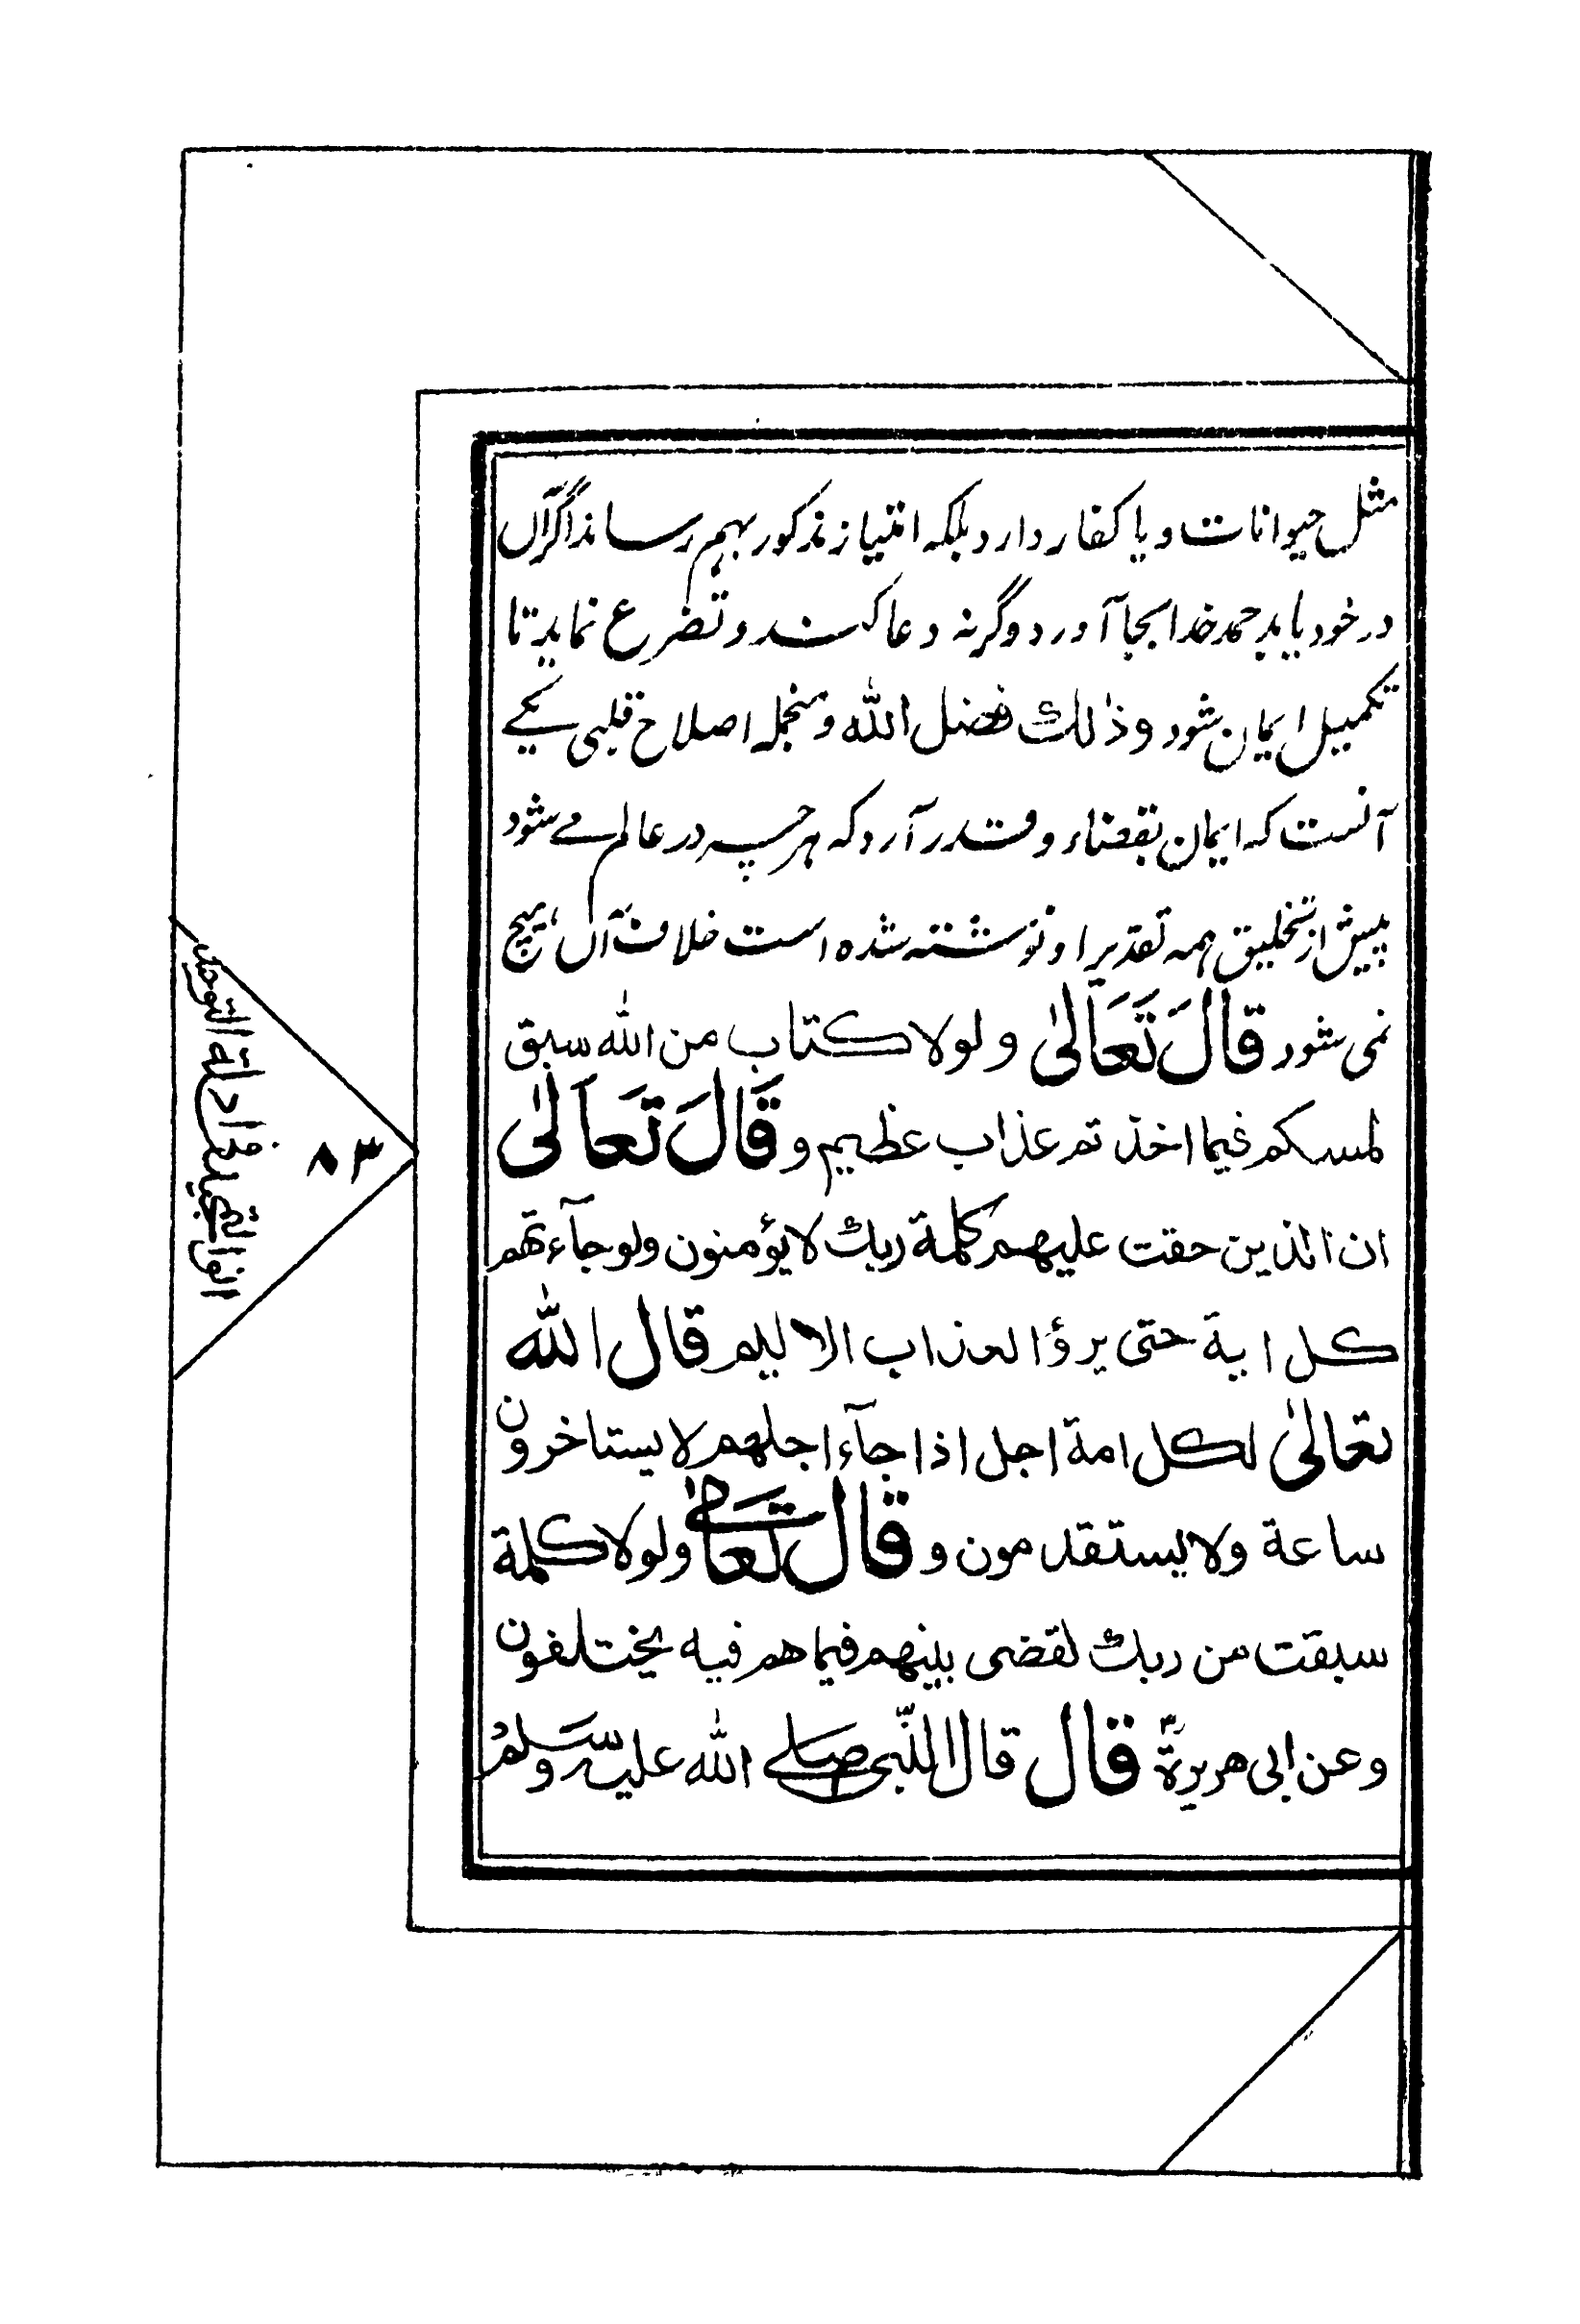 مثل حیوانات و یا کفار دارد بلکه امتیاز مذکور بهم رساند اگر آں
در خود یابد حمد خدا بجا آورد و گرنه دعا کند و تضرع نماید تا
تکمیل ایمان شود وذٰلك فضل الله و منجمله اصلاح قلبی یکے
آنست که ایمان بقضاء و قدر آرد که هر چه در عالم مے شود
پیش از تخلیق همه تقدیر او نوشته شده است خلاف آں هیچ
نمی شود قَالَ تَعَالٰی ولولا كتاب من الله سبق
لمسكم فيما اخذتم عذاب عظيم و قَالَ تَعَالٰی
ان الذين حقت عليهم كلمة ربك لا يؤمنون ولو جآءتهم
كل اية حتى يرؤا العذاب الاليم قال الله
تعالٰی لكل امة اجل اذا جآء اجلهم لا يستاخرون
ساعة ولا يستقدمون و قال تعالٰی ولولا كلمة
سبقت من ربك لقضى بينهم فيما هم فيه يختلفون
وعن ابی هريرةؓ قال قال النّبی صلی الله علیه وسلم
۸۳